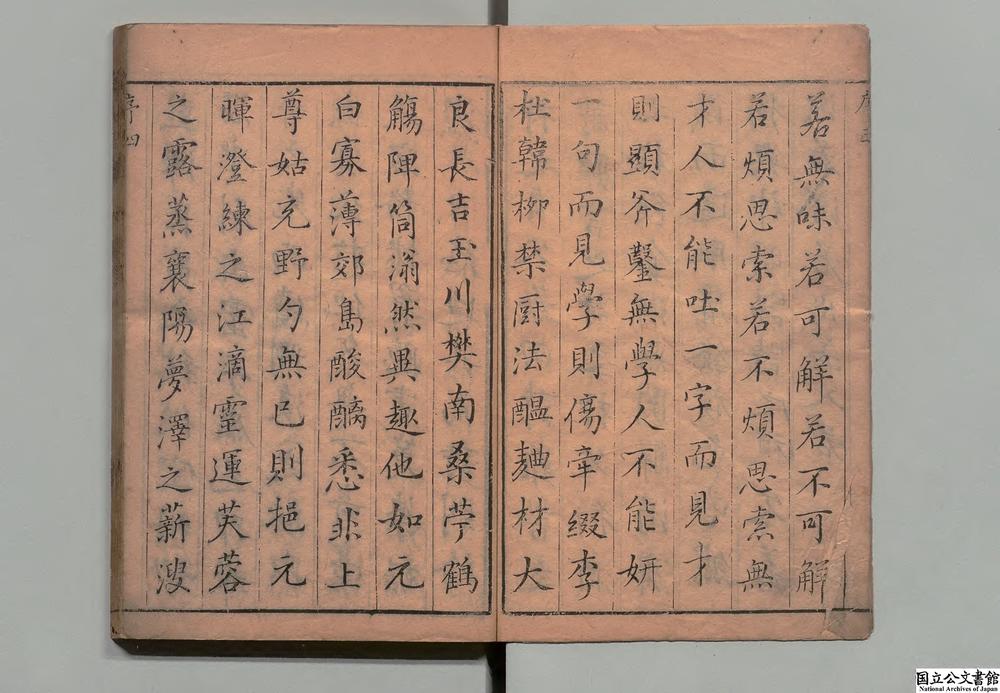 序三
若無味若可解若不可解
若煩思索若不煩思索無
才人不能吐一字而見才
則顯斧鑿無學人不能妍
一句而見學則傷牽綴李
杜韓柳禁厨法醞麯材大
良長吉玉川樊南桑苧鶴
觴陴筒滃然異趣他如元
白寡薄郊島酸醨悉非上
尊姑充野勺無已則挹元
暉澄練之江滴靈運芙蓉
之露蒸襄陽夢澤之薪溲
序四
国立公文書館
National Archives of Japan